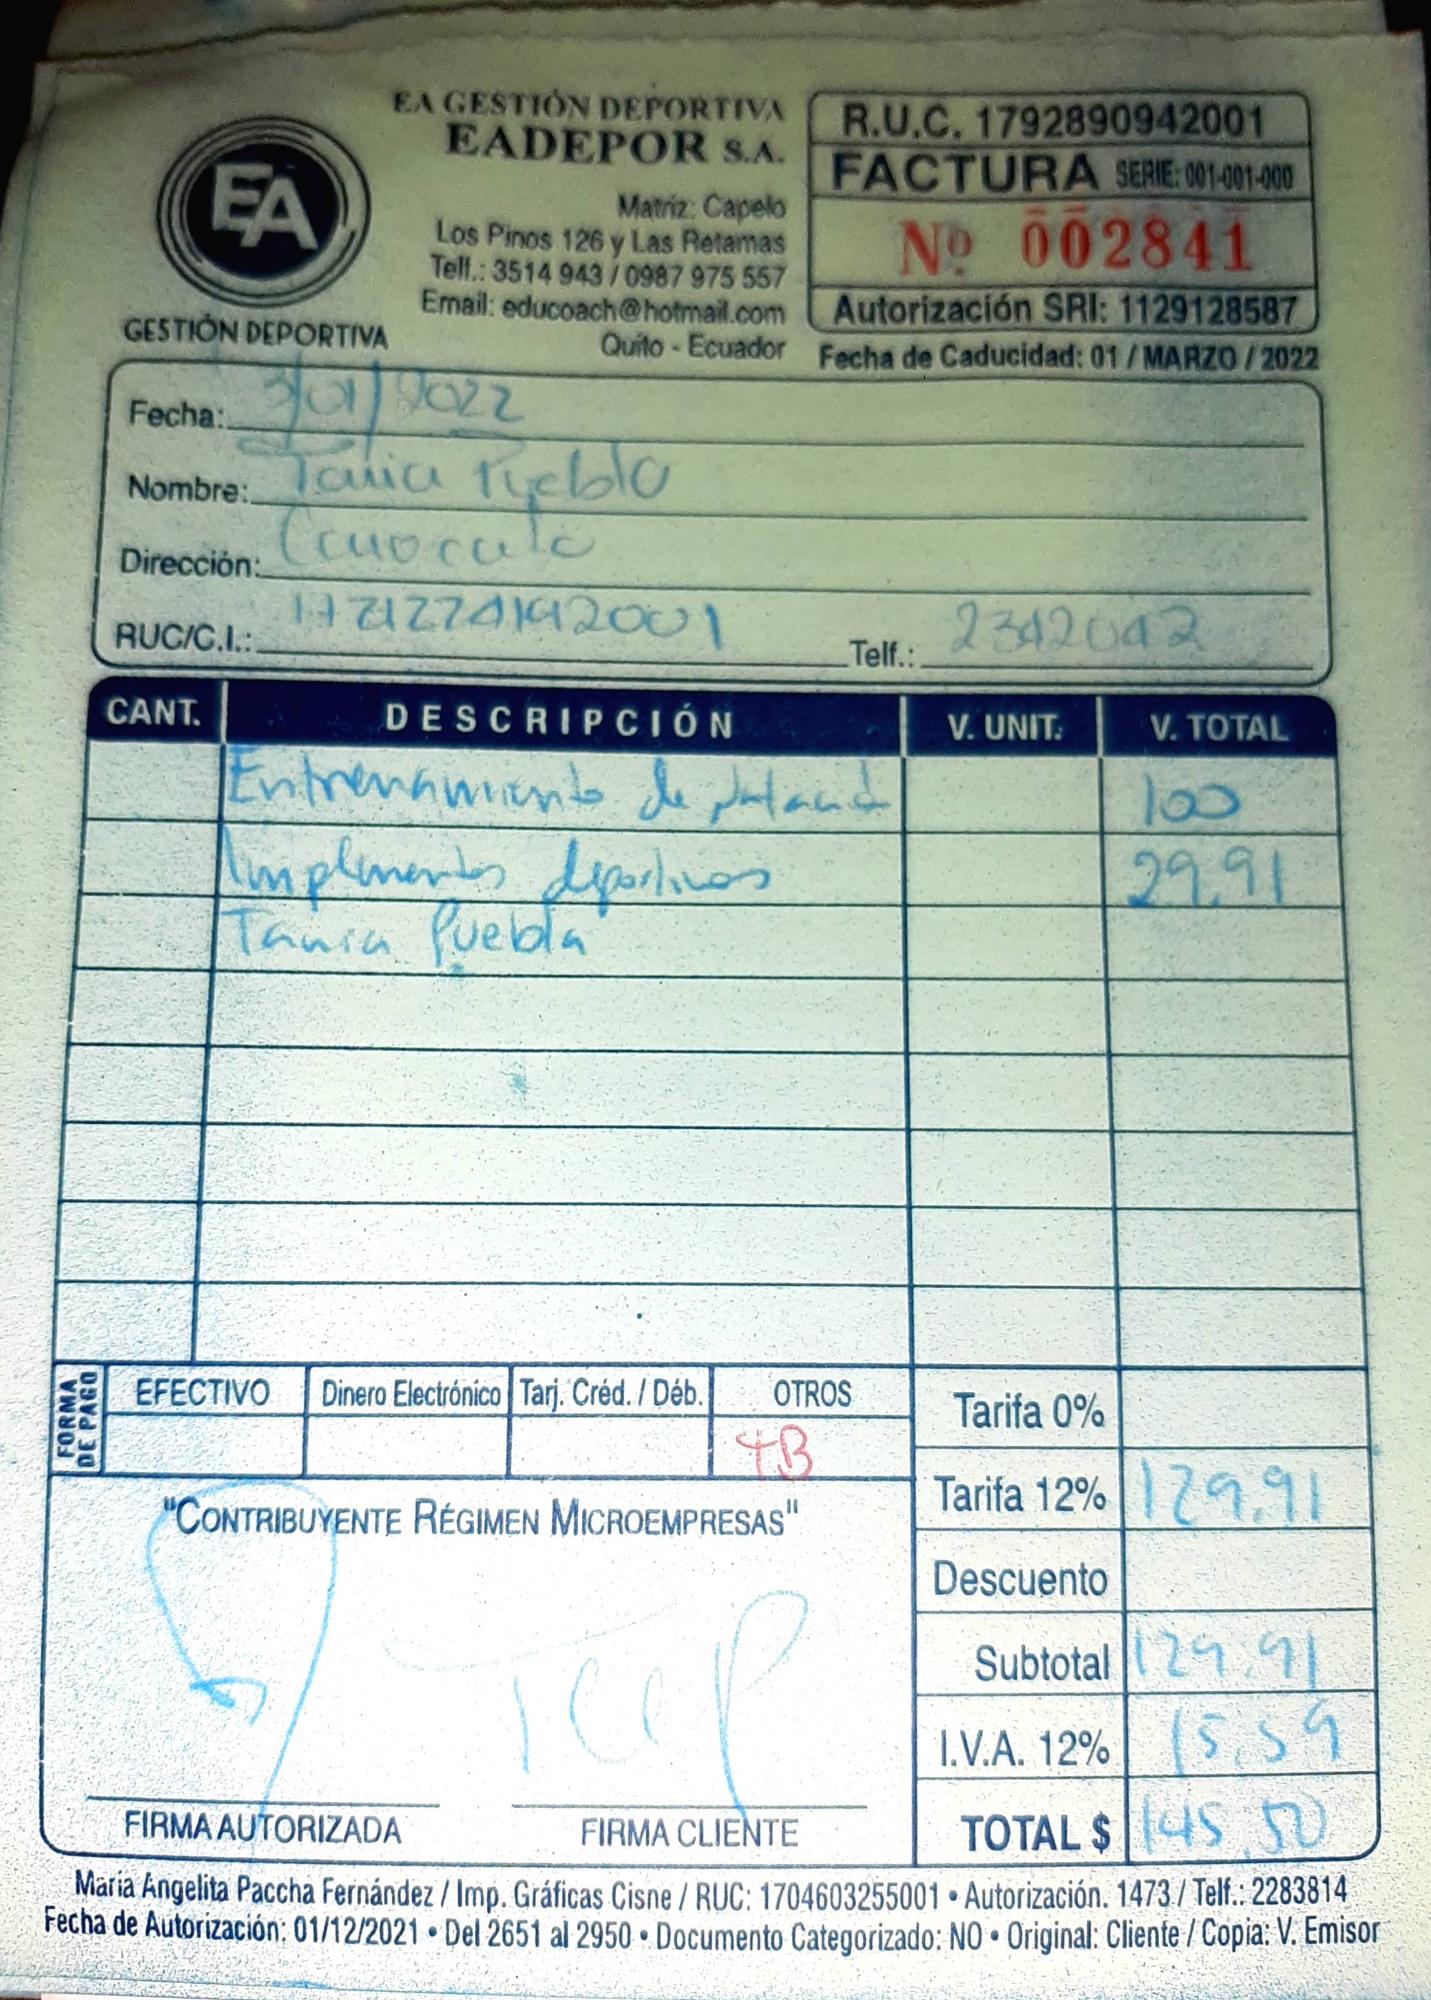 EA GESTIÓN DEPORTIVA
EADEPOR S.A.
EA
GESTIÓN DEPORTIVA
Matriz: Capelo
Los Pinos 126 y Las Retamas
Telf.: 3514 943 / 0987 975 557
Email: educoach@hotmail.com
Quito - Ecuador
R.U.C. 1792890942001
FACTURA SERIE: 001-001-000
Nº 002841
Autorización SRI: 1129128587
Fecha de Caducidad: 01 / MARZO / 2022
Fecha: 3/01/2022
Nombre: Tania Puebla
Dirección:
RUC/C.I.: Telf.: 2342042
CANT. DESCRIPCIÓN V. UNIT. V. TOTAL
Entrenamiento de 100
Implementos deportivos 29.91
Tania Puebla
FORMA DE PAGO
EFECTIVO Dinero Electrónico Tarj. Créd. / Déb. OTROS
TB
Tarifa 0%
Tarifa 12% 129.91
Descuento
Subtotal 129.91
I.V.A. 12% 15.59
TOTAL $ 145.50
"CONTRIBUYENTE RÉGIMEN MICROEMPRESAS"
FIRMA AUTORIZADA FIRMA CLIENTE
María Angelita Paccha Fernández / Imp. Gráficas Cisne / RUC: 1704603255001 • Autorización. 1473 / Telf.: 2283814
Fecha de Autorización: 01/12/2021 • Del 2651 al 2950 • Documento Categorizado: NO • Original: Cliente / Copia: V. Emisor